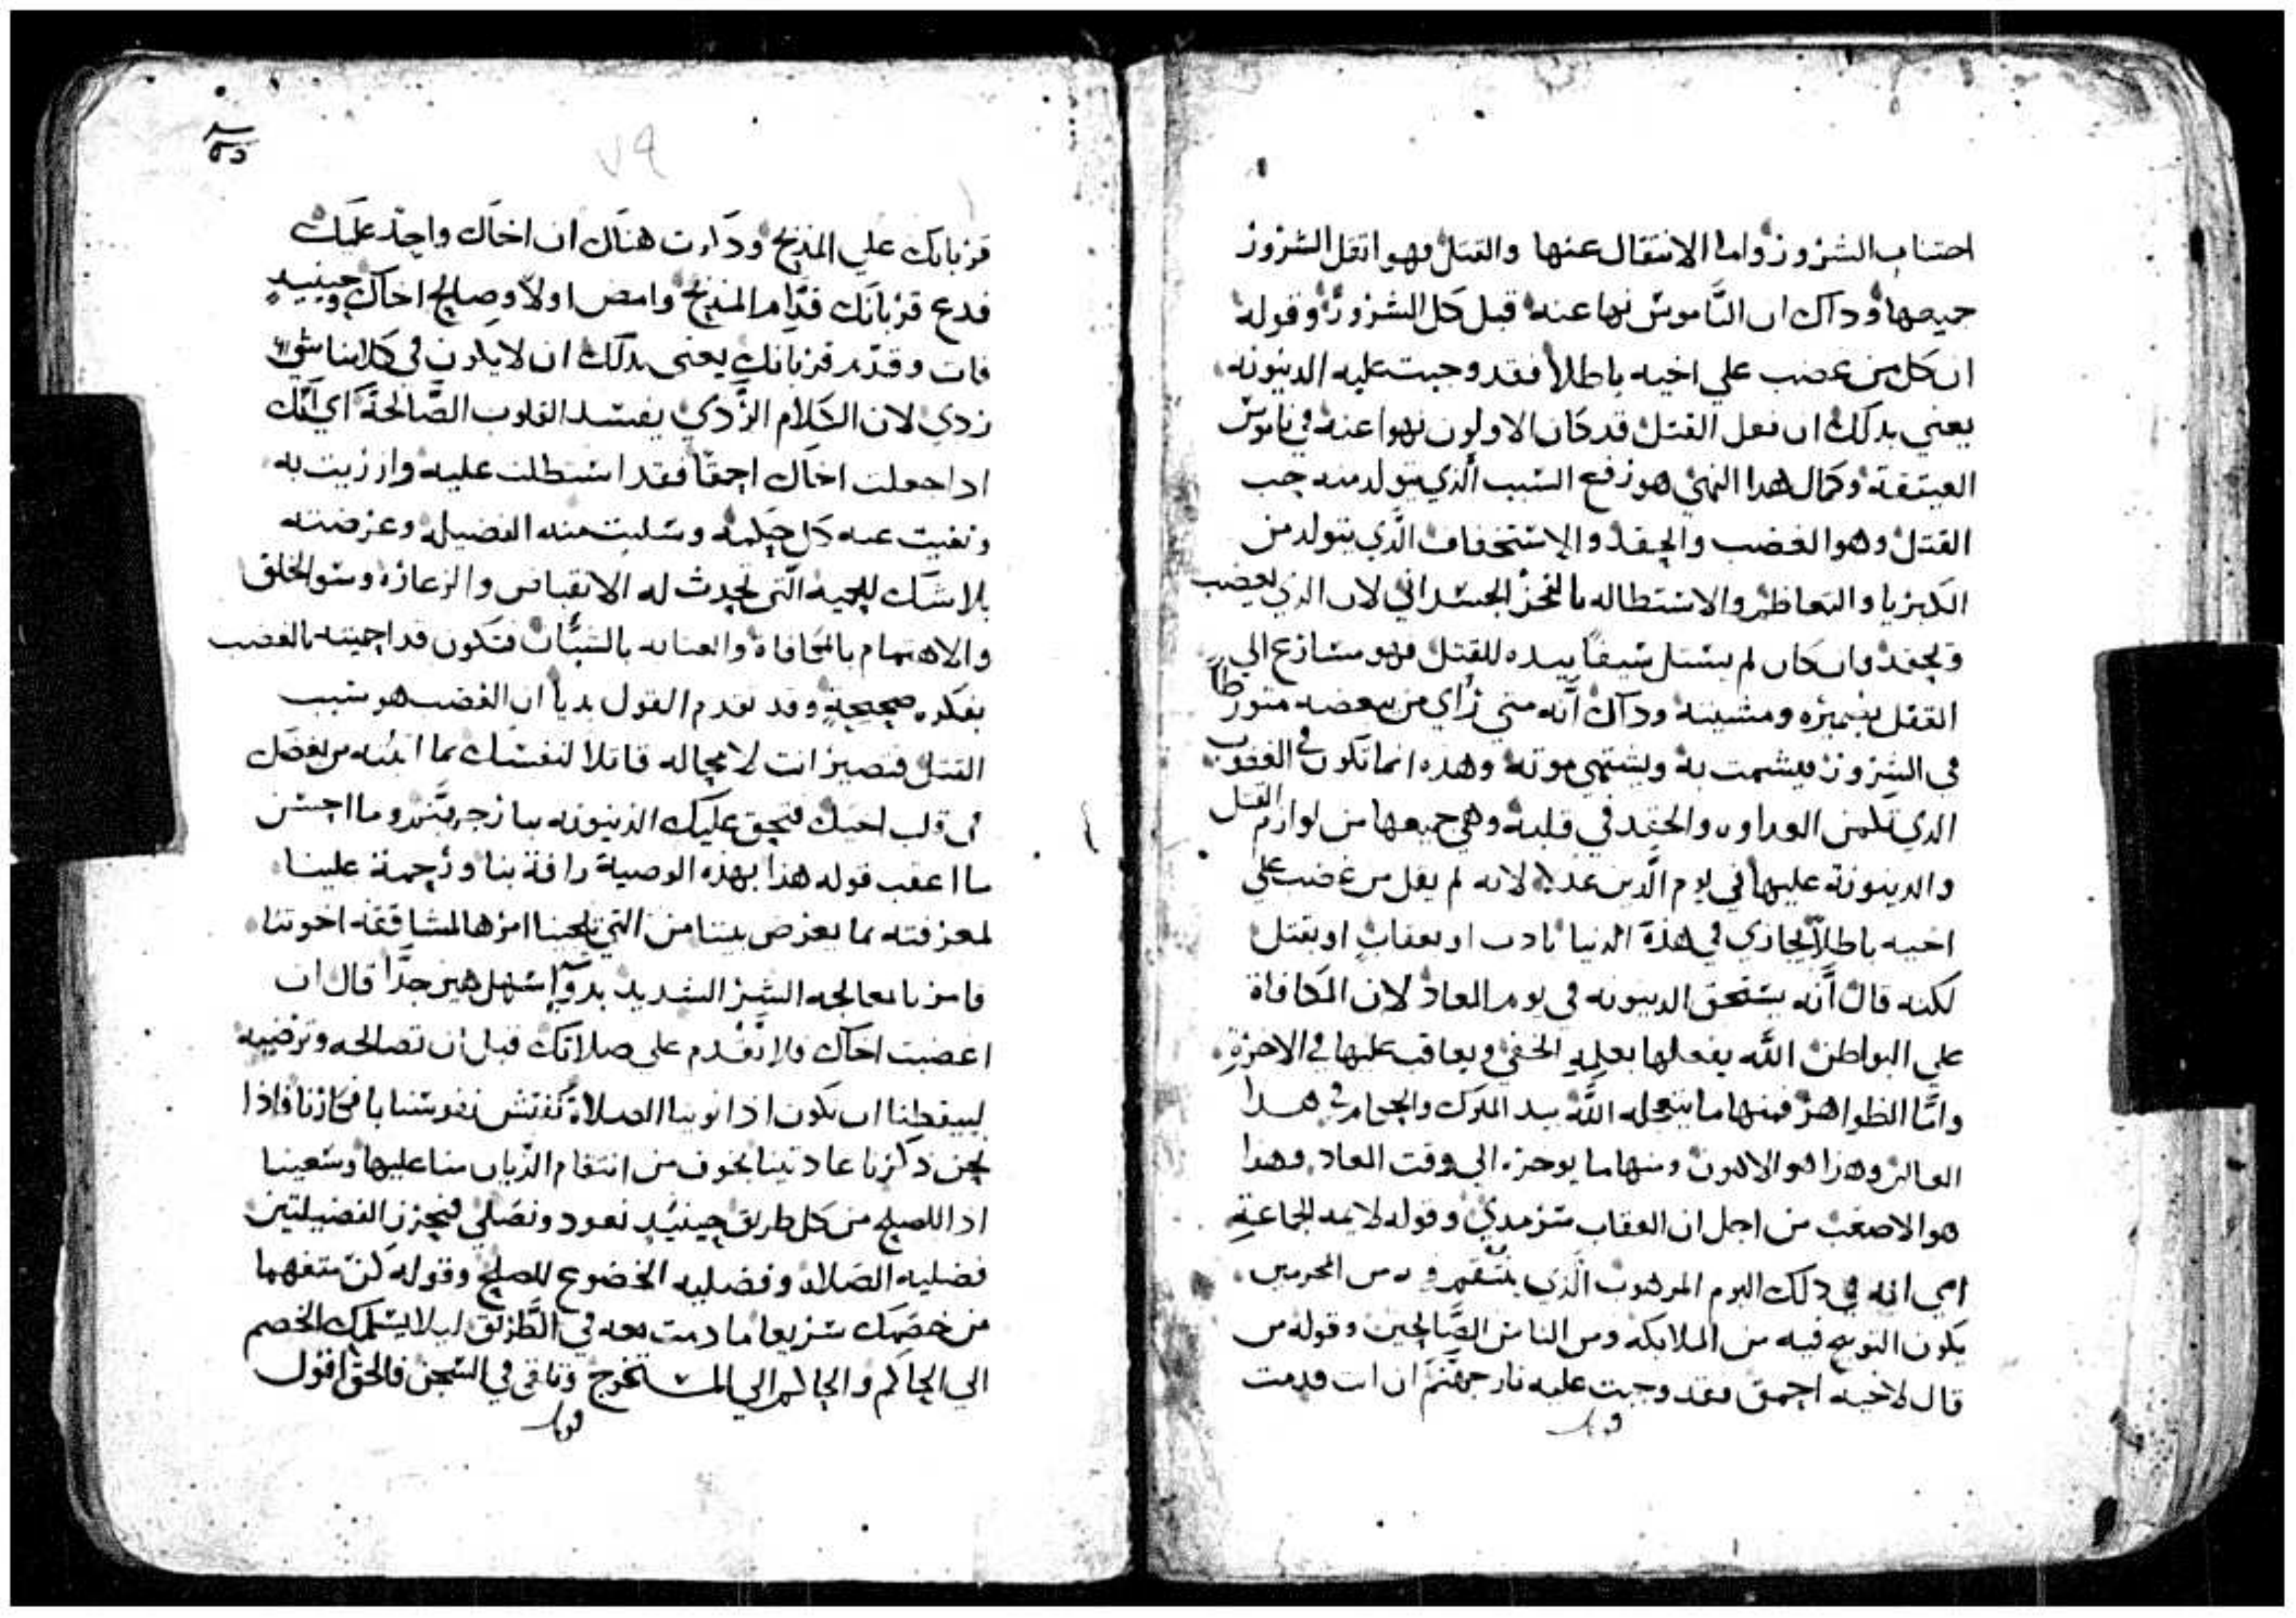 اجتناب الشرور واما الانتقال عنها والقتل فهو اثقل الشرور
جميعها وداك ان الناموس نها عنه قبل كل الشرور وقوله
ان كل من غضب علي اخيه باطلا فقد وجبت عليه الدينونه
يعني بدلك ان فعل القتل قد كان الاولون نهوا عنه في ناموس
العتيقة وكمال هدا النهي هو رفع السبب الذي يتولد منه حب
القتل وهو الغضب والحقد والاستخفاف الذي يتولد من
الكبريا والتعاظم والاستطاله بالفخر الجسداني لان الذي يغضب
ويحقد وان كان لم يستل سيفا بيده للقتل فهو مسارع الي
القتل بضميره ومشيته وداك انه متي راي من يبغضه متورطا
في الشرور فيشمت به ويشتهي موته وهده انما تكون في الغضوب
الدي تكمن العداوه والحقد في قلبه وهي جميعها من لوازم القتل
والدينونة عليها في يوم الدين عدلا لانه لم يقل من غضب علي
اخيه باطلا يجازي في هذه الدنيا بادب او بعقاب او بقتل
لكنه قال انه يستحق الدينونه في يوم المعاد لان المكافاة
علي البواطن الله يفعلها بعلمه الخفي ويعاقب عليها في الاخرة
واما الظواهر فمنها ما يتعجله الله بيد الملوك والحكام في هدا
العالم وهذا هو الاهون ومنها ما يوخره الي وقت المعاد وهدا
هو الاصعب من اجل ان العقاب سرمدي وقوله لايمه الجماعة
اي انه في دلك اليوم المرهوب الذي ينتقم فيه من المجرمين
يكون التوبيخ فيه من الملايكه ومن الناس الصالحين وقوله من
قال لاخيه احمق فقد وجبت عليه نار جهنم ان انت قدمت
٧٩
قربانك علي المذبح ودكرت هناك ان اخاك واجد عليك
فدع قربانك قدام المذبح وامض اولا وصالح اخاك وحينيد
فات وقدم قربانك يعني بدلك ان لا يكون في كلامنا شي
ردي لان الكلام الردي يفسد القلوب الصالحة اي انك
ادا جعلت اخاك احمقا فقد استطلت عليه وازريت به
ونفيت عنه كل حكمه وسلبت منه الفضيله وعرضته
بلا شك للحميه التي تحدث له الانقباض والزعاره وسو الخلق
والاهتمام بالمكافاة والعنايه بالسباب فتكون قد احميته بالغضب
بفكره صحيحة وقد تقدم القول بديا ان الغضب هو سبب
القتل فتصير انت لا محاله قاتلا لنفسك بما اثبته من بغضك
في قلب اخيك فتحق عليك الدينونه بنار جهنم وما احسن
ما اعقب قوله هذا بهذه الوصية رافة بنا ورحمة علينا
لمعرفته بما يعرض بيننا من التي تلجينا امرها لمشاققه اخوتنا
فامرنا بمعالجه الشر الشديد بدوآ سهل هين جدا قال ان
اغضبت اخاك فلا تقدم علي صلاتك قبل ان تصالحه وترضيه
ليبقظنا ان نكون اذا نوينا الصلاة نفتش نفوسنا بافكارنا فاذا
نحن ذكرنا عادتينا بخوف من انتقام الديان منا عليها وسعينا
ادا للصلح من كل طريق حينيد نعود ونصلي فنحرز الفضيلتين
فضليه الصلاه وفضليه الخضوع للصلح وقوله كن متفهما
من خصمك سريعا ما دمت معه في الطريق ليلا يسلمك الخصم
الي الحاكم والحاكم الي المستخرج وتلقي في السجن فالحق اقول